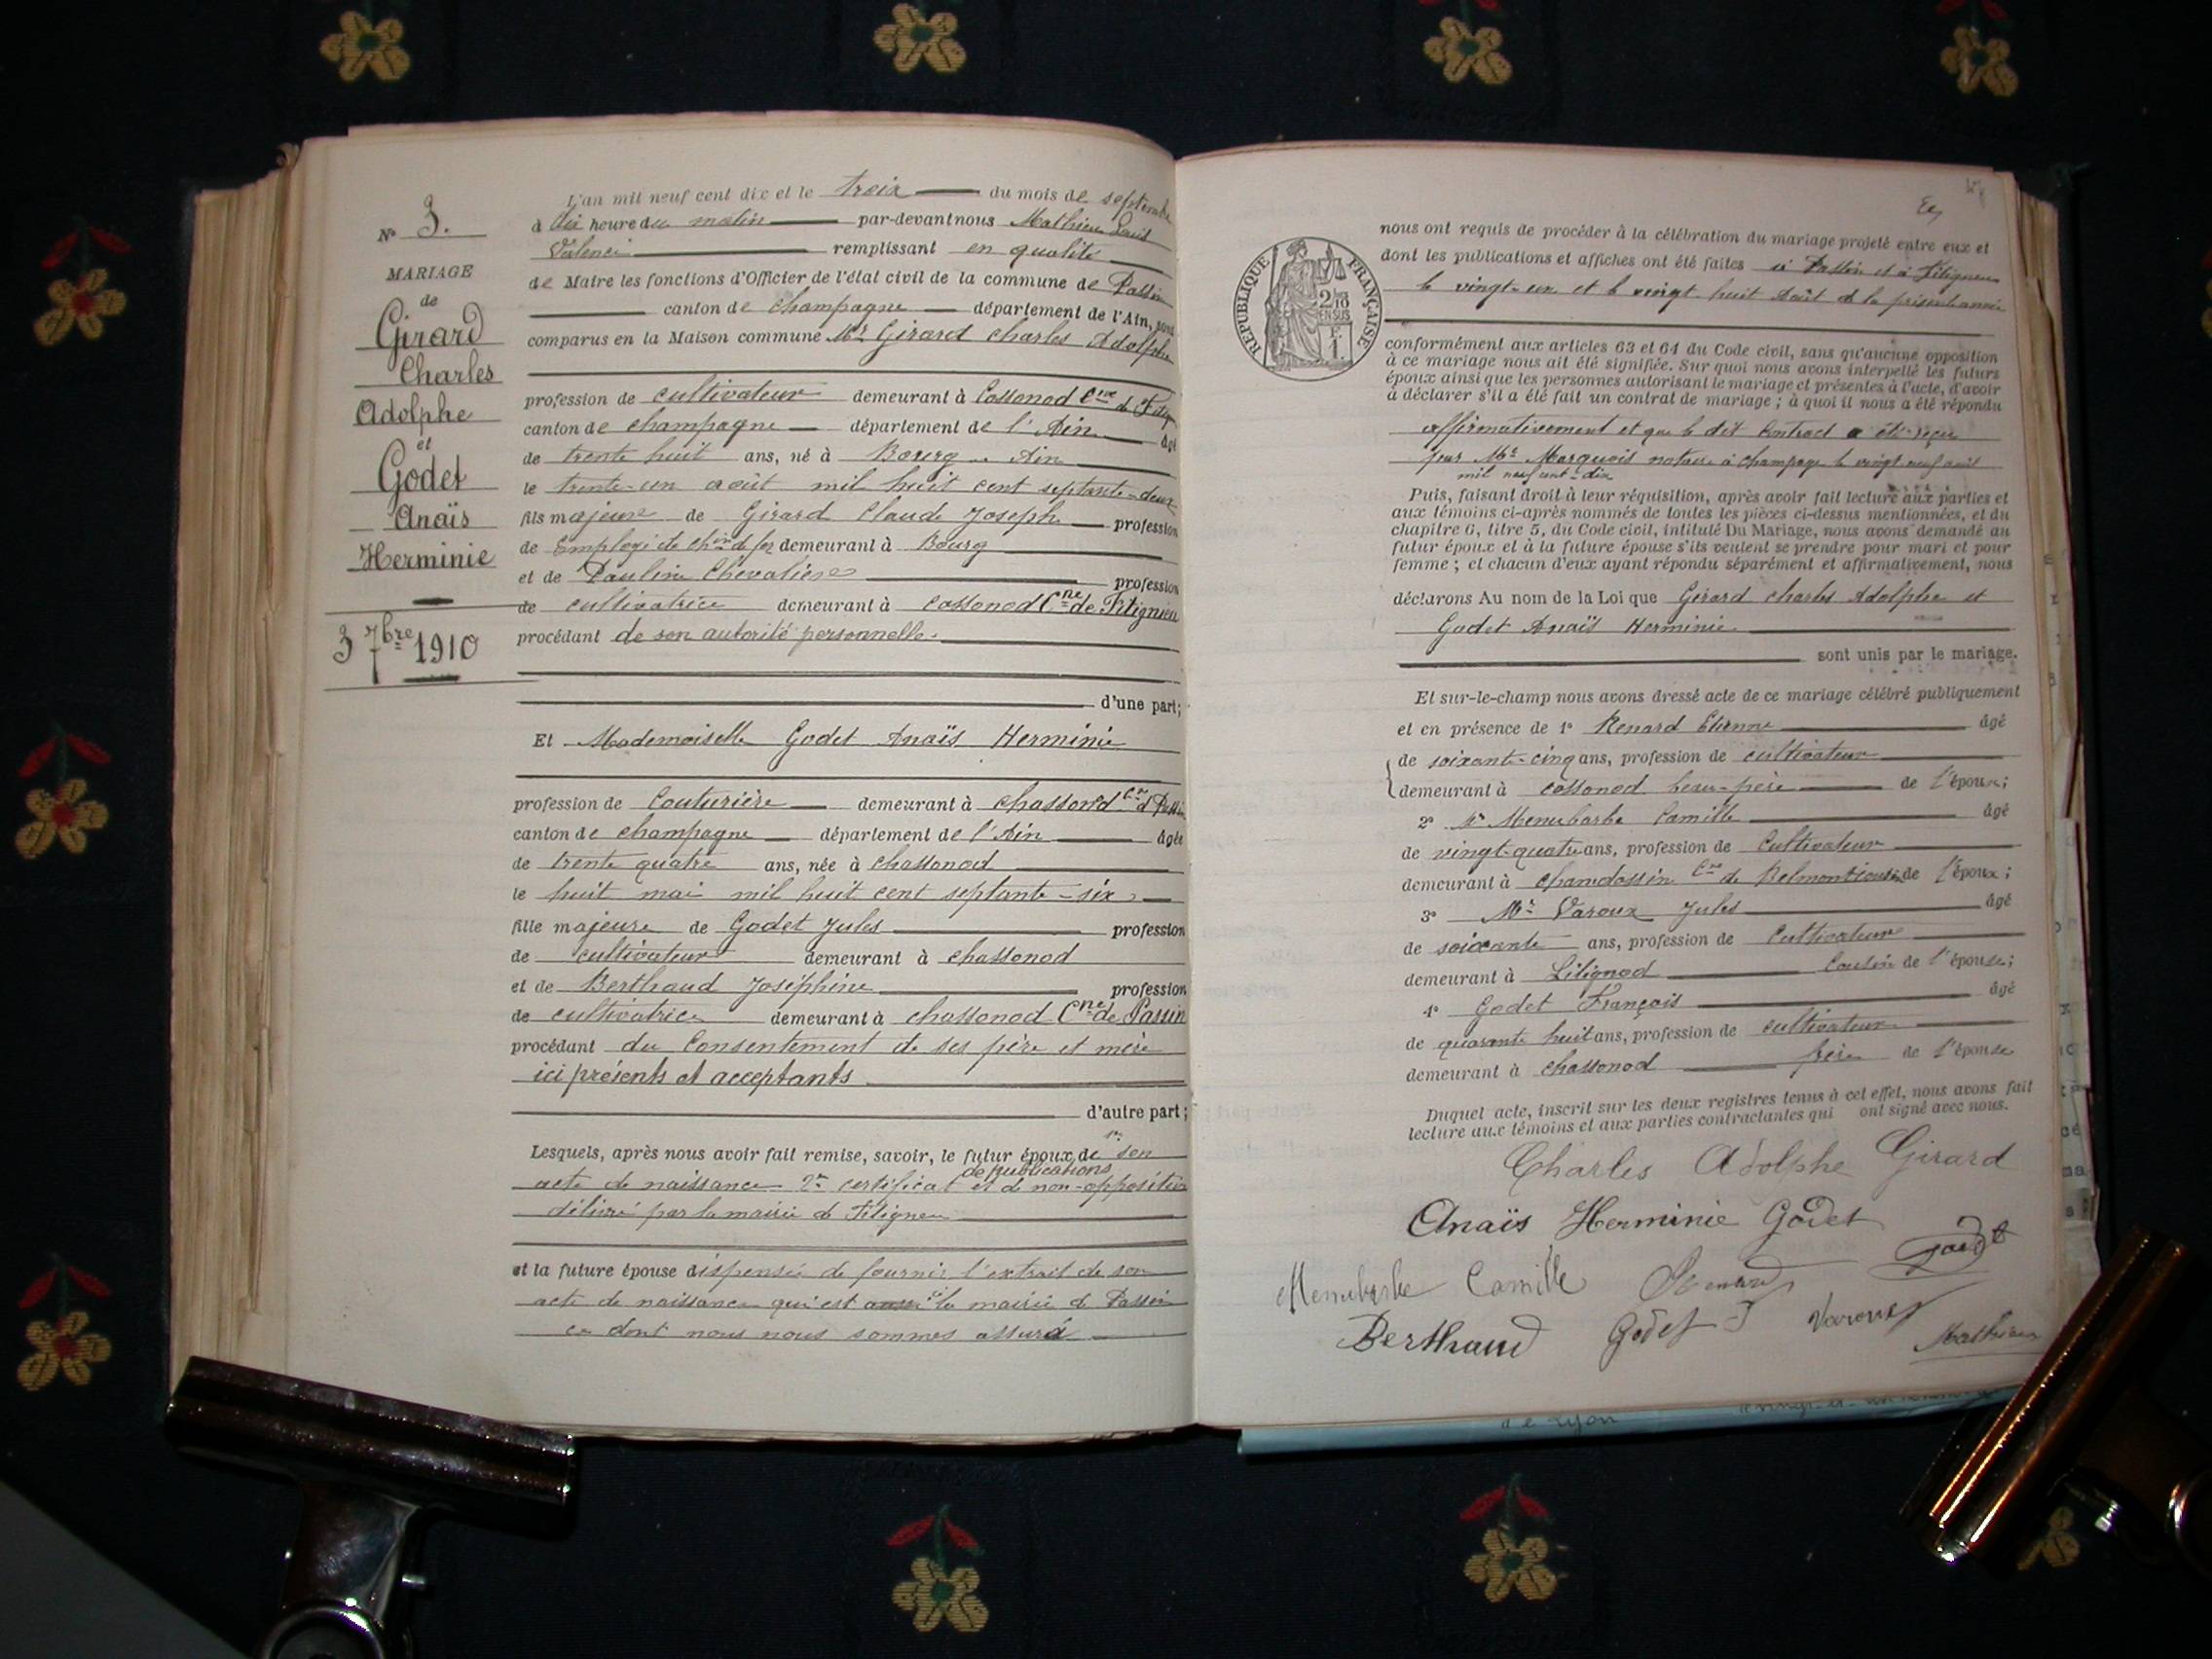 N° 3.
MARIAGE
de
Girard
Charles
Adolphe
et
Godet
Anaïs
Herminie
3 7bre 1910
L'an mil neuf cent dix et le trois du mois de septembre
à dix heure du matin par-devant nous Mathieu Louis
remplissant en qualité
de Maire les fonctions d'Officier de l'état civil de la commune de Passin
canton de champagne département de l'Ain, sont
comparus en la Maison commune Mr Girard Charles Adolphe
profession de cultivateur demeurant à Cossonod Cne de
canton de champagne département de l'Ain âgé
de trente huit ans, né à Bourg Ain
le trente-un août mil huit cent septante-deux
fils majeur de Girard Claude Joseph profession
de Employé de chin de fer demeurant à Bourg
et de Pauline Chevalier profession
de cultivatrice demeurant à cossonod Cne de Fitignieu
procédant de son autorité personnelle.
d'une part;
Et Mademoiselle Godet Anaïs Herminie
profession de Couturière demeurant à chassonod Cne d Passin
canton de champagne département de l'Ain âgée
de trente quatre ans, née à chassonod
le huit mai mil huit cent septante-six
fille majeure de Godet Jules profession
de cultivateur demeurant à chassonod
et de Berthaud Joséphine profession
de cultivatrice demeurant à chassonod Cne de Passin
procédant du Consentement de ses père et mère
ici présents et acceptants
d'autre part;
Lesquels, après nous avoir fait remise, savoir, le futur époux de 1° son
acte de naissance 2° certificat de publications et de non-opposition
délivré par la mairie de Fitignieu
et la future épouse dispensée de fournir l'extrait de son
acte de naissance qui est à la mairie de Passin
ce dont nous nous sommes assuré
REPUBLIQUE FRANÇAISE
2/10 EN SUS
nous ont requis de procéder à la célébration du mariage projeté entre eux et
dont les publications et affiches ont été faites à Passin et à Fitignieu
le vingt-un et le vingt-huit Août de la présente année
conformément aux articles 63 et 64 du Code civil, sans qu'aucune opposition
à ce mariage nous ait été signifiée. Sur quoi nous avons interpellé les futurs
époux ainsi que les personnes autorisant le mariage et présentes à l'acte, d'avoir
à déclarer s'il a été fait un contrat de mariage; à quoi il nous a été répondu
affirmativement et que le dit Contract a été reçu
par Me Marquois notaire à champagne le vingt neuf août
mil neuf cent-dix
Puis, faisant droit à leur réquisition, après avoir fait lecture aux parties et
aux témoins ci-après nommés de toutes les pièces ci-dessus mentionnées, et du
chapitre 6, titre 5, du Code civil, intitulé Du Mariage, nous avons demandé au
futur époux et à la future épouse s'ils veulent se prendre pour mari et pour
femme; et chacun d'eux ayant répondu séparément et affirmativement, nous
déclarons Au nom de la Loi que Girard charles Adolphe et
Godet Anaïs Herminie
sont unis par le mariage.
Et sur-le-champ nous avons dressé acte de ce mariage célébré publiquement
et en présence de 1° Renard Etienne âgé
de soixante-cinq ans, profession de cultivateur
demeurant à cossonod beau-père de l'époux;
2° Mr Menubarbe Camille âgé
de vingt-quatre ans, profession de Cultivateur
demeurant à chamdossin Cne de Belmont de l'époux;
3° Mr Varoux Jules âgé
de soixante ans, profession de Cultivateur
demeurant à Lilignod Cousin de l'épouse;
4° Godet François âgé
de quarante huit ans, profession de cultivateur
demeurant à chassonod frère de l'épouse
Duquel acte, inscrit sur les deux registres tenus à cet effet, nous avons fait
lecture aux témoins et aux parties contractantes qui ont signé avec nous.
Charles Adolphe Girard
Anaïs Herminie Godet
Menubarbe Camille Renard Godet
Berthaud Godet J Varoux Mathieu
de Lyon